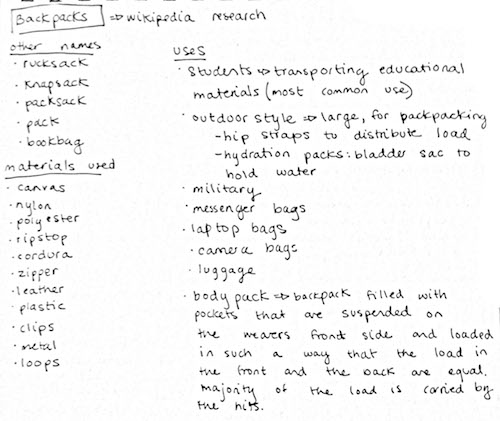 Backpacks ⇒ wikipedia research
other names
· rucksack
· knapsack
· packsack
· pack
· bookbag
materials used
· canvas
· nylon
· polyester
· ripstop
· cordura
· zipper
· leather
· plastic
· clips
· metal
· loops
uses
· students ⇒ transporting educational
materials (most common use)
· outdoor style ⇒ large, for backpacking
- hip straps to distribute load
- hydration packs: bladder sac to
hold water
· military
· messenger bags
· laptop bags
· camera bags
· luggage
· body pack ⇒ backpack filled with
pockets that are suspended on
the wearers front side and loaded
in such a way that the load in
the front and the back are equal.
majority of the load is carried by
the hits.